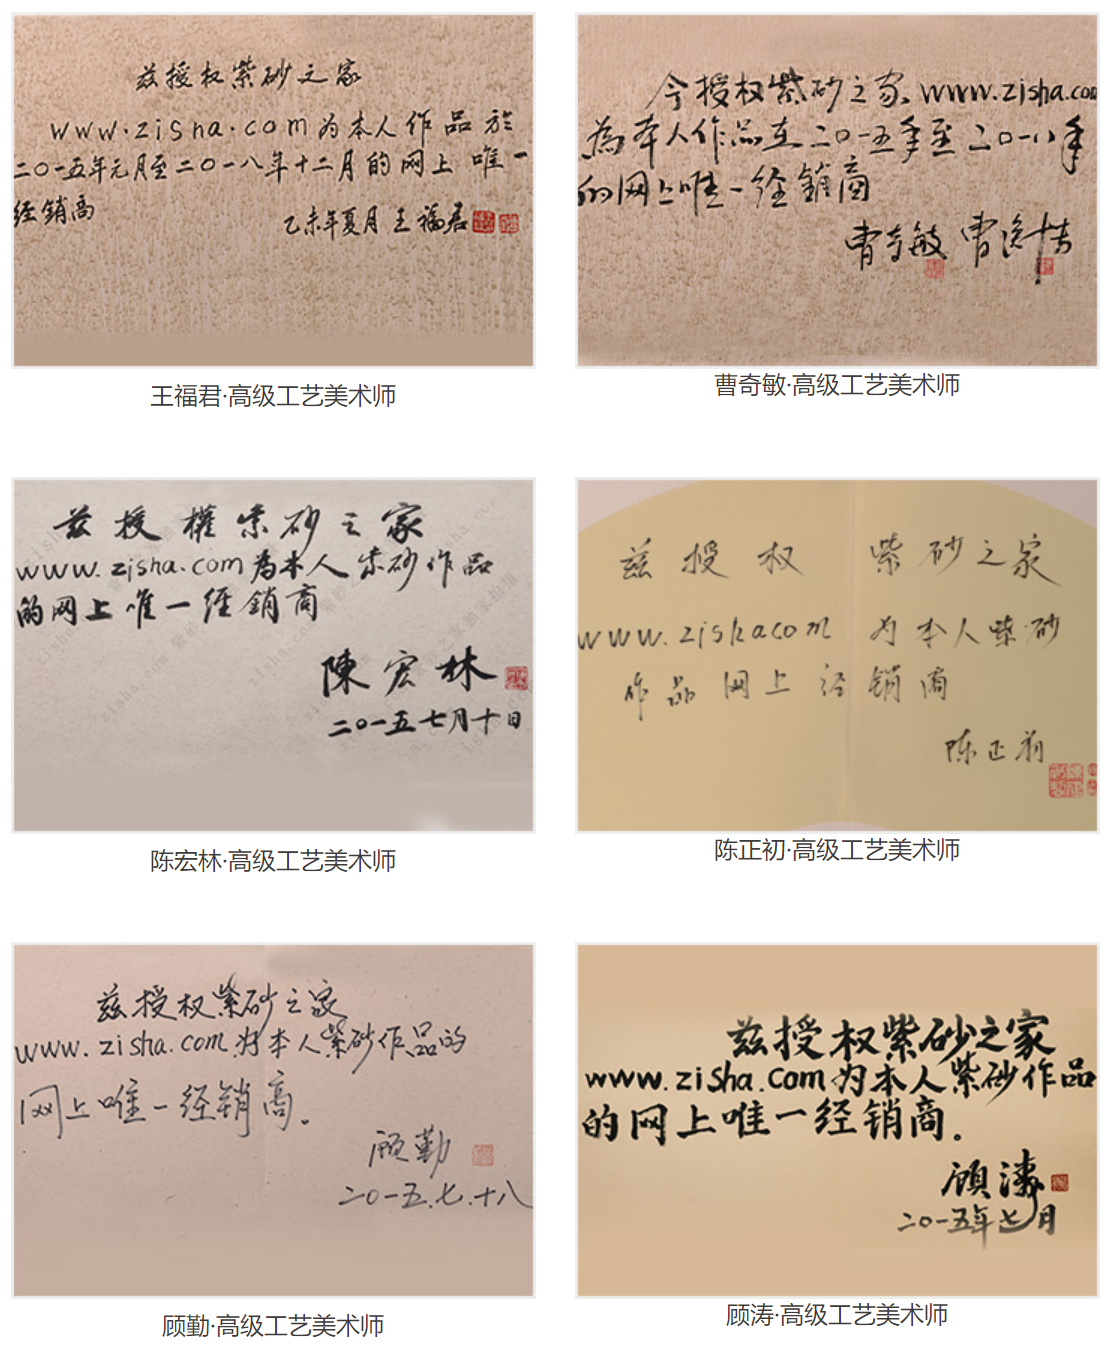 兹授权紫砂之家
www.zisha.com为本人作品於
二〇一五年元月至二〇一八年十二月的网上唯一
经销商
乙未年夏月 王福君
王福君·高级工艺美术师
今授权紫砂之家www.zisha.com
為本人作品在二〇一五年至二〇一八年
的网上唯一经销商
曹奇敏 曹逸倩
曹奇敏·高级工艺美术师
兹授權紫砂之家
www.zisha.com为本人紫砂作品
的网上唯一经銷商
陳宏林
二〇一五七月十日
陈宏林·高级工艺美术师
兹授权 紫砂之家
www.zishacom 为本人紫砂
作品网上经销商
陈正初
陈正初·高级工艺美术师
兹授权紫砂之家
www.zisha.com为本人紫砂作品的
网上唯一经销商。
顾勤
二〇一五.七.十八
顾勤·高级工艺美术师
兹授权紫砂之家
www.zisha.com为本人紫砂作品
的网上唯一经销商。
顾涛
二〇一五年七月
顾涛·高级工艺美术师